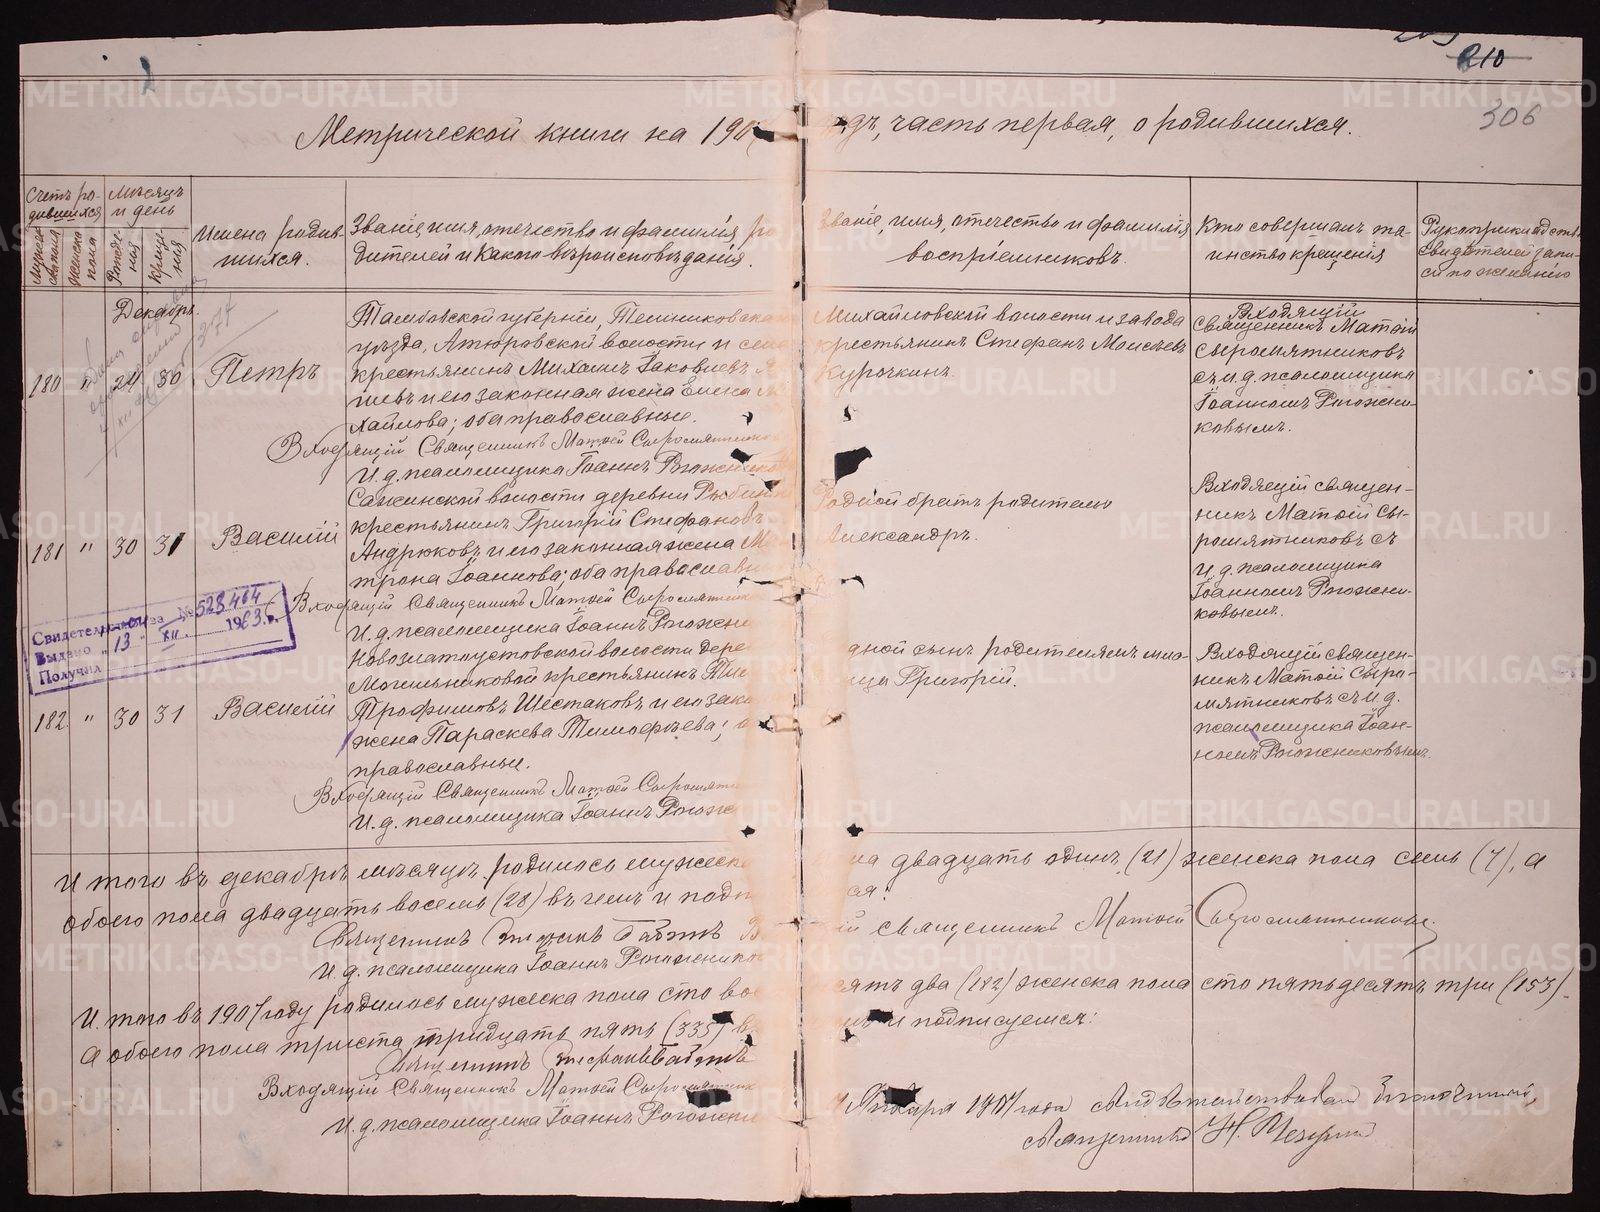 210
306
Метрической книги на 190 годъ, часть первая, о родившихся.
Счетъ ро-
дившихся
Мѣсяцъ
и день
Мужеска
пола
Женска
пола
Рожде-
нія
Креще-
нія
Имена родив-
шихся.
Званіе, имя, отчество и фамилія ро
дителей и какого вѣроисповѣданія.
Званіе, имя, отчество и фамилія
воспріемниковъ.
Кто совершалъ та-
инство крещенія
Рукоприкладство
свидетелей запи-
си по желанію
Декабрь.
180 " 24 30 Петръ
Тамбовской губерніи, Темниковска
уѣзда, Атюровской волости и села
крестьянинъ Михаилъ Іаковлевъ
и его законная жена Елена
хайлова; оба православные.
Входящій Священникъ Матѳей Сыромятников
И. д. псаломщика Іоаннъ Рогожников
Михайловской волости и завода
крестьянинъ Стефанъ Моисѣевъ
Курочкинъ.
Входящій
священникъ Матѳій
Сыромятниковъ
съ и. д. псаломщика
Іоанномъ Рогожни-
ковымъ.
181 " 30 31 Василій
Сажинской волости деревни
крестьянинъ Григорій Стефановъ
Андрюковъ и его законная жена Ма
трона Іоаннова; оба православн
Входящій Священникъ Матѳей Сыромятник
И. д. псаломщика Іоаннъ Рогожни
Родной братъ родителю
Александръ.
Входящій священ-
никъ Матѳій Сы-
ромятниковъ съ
и д. псаломщика
Іоанномъ Рогожни-
ковымъ.
Свидетельства № 528464
Выдано „13" XII. 1963 г.
Получил
182 " 30 31 Василій
Новозлатоустовской волости дере
Могильниковой крестьянинъ
Трофимовъ Шестаковъ и его зако
жена Параскева Тимофѣева;
православные.
Входящій Священникъ Матѳей Сыромят
И. д. псаломщика Іоаннъ Рогож
дной сынъ родителямъ
Григорій.
Входящій священ-
никъ Матѳій Сыро-
мятниковъ съ и. д.
псаломщика Іоан-
номъ Рогожниковымъ.
Итого въ декабрѣ мѣсяцѣ родилось мужеска пола двадцать одинъ (21) женска пола семь (7), а
обоего пола двадцать восемь (28) въ чемъ и подп
Священникъ
й священникъ Матѳей Сыромятниковъ.
И. д. псаломщика Іоаннъ Рогожников
Итого въ 1907 году родилось мужеска пола сто во сятъ два (182) женска пола сто пятьдесятъ три (153).
а обоего пола триста тридцать пять (335) въ и подписуемся:
Священникъ
Входящій Священникъ Матѳей Сыромятник
И. д. псаломщика Іоаннъ Рогожни
Января 1907 года Благочинный,
Священникъ Н.
METRIKI.GASO-URAL.RU